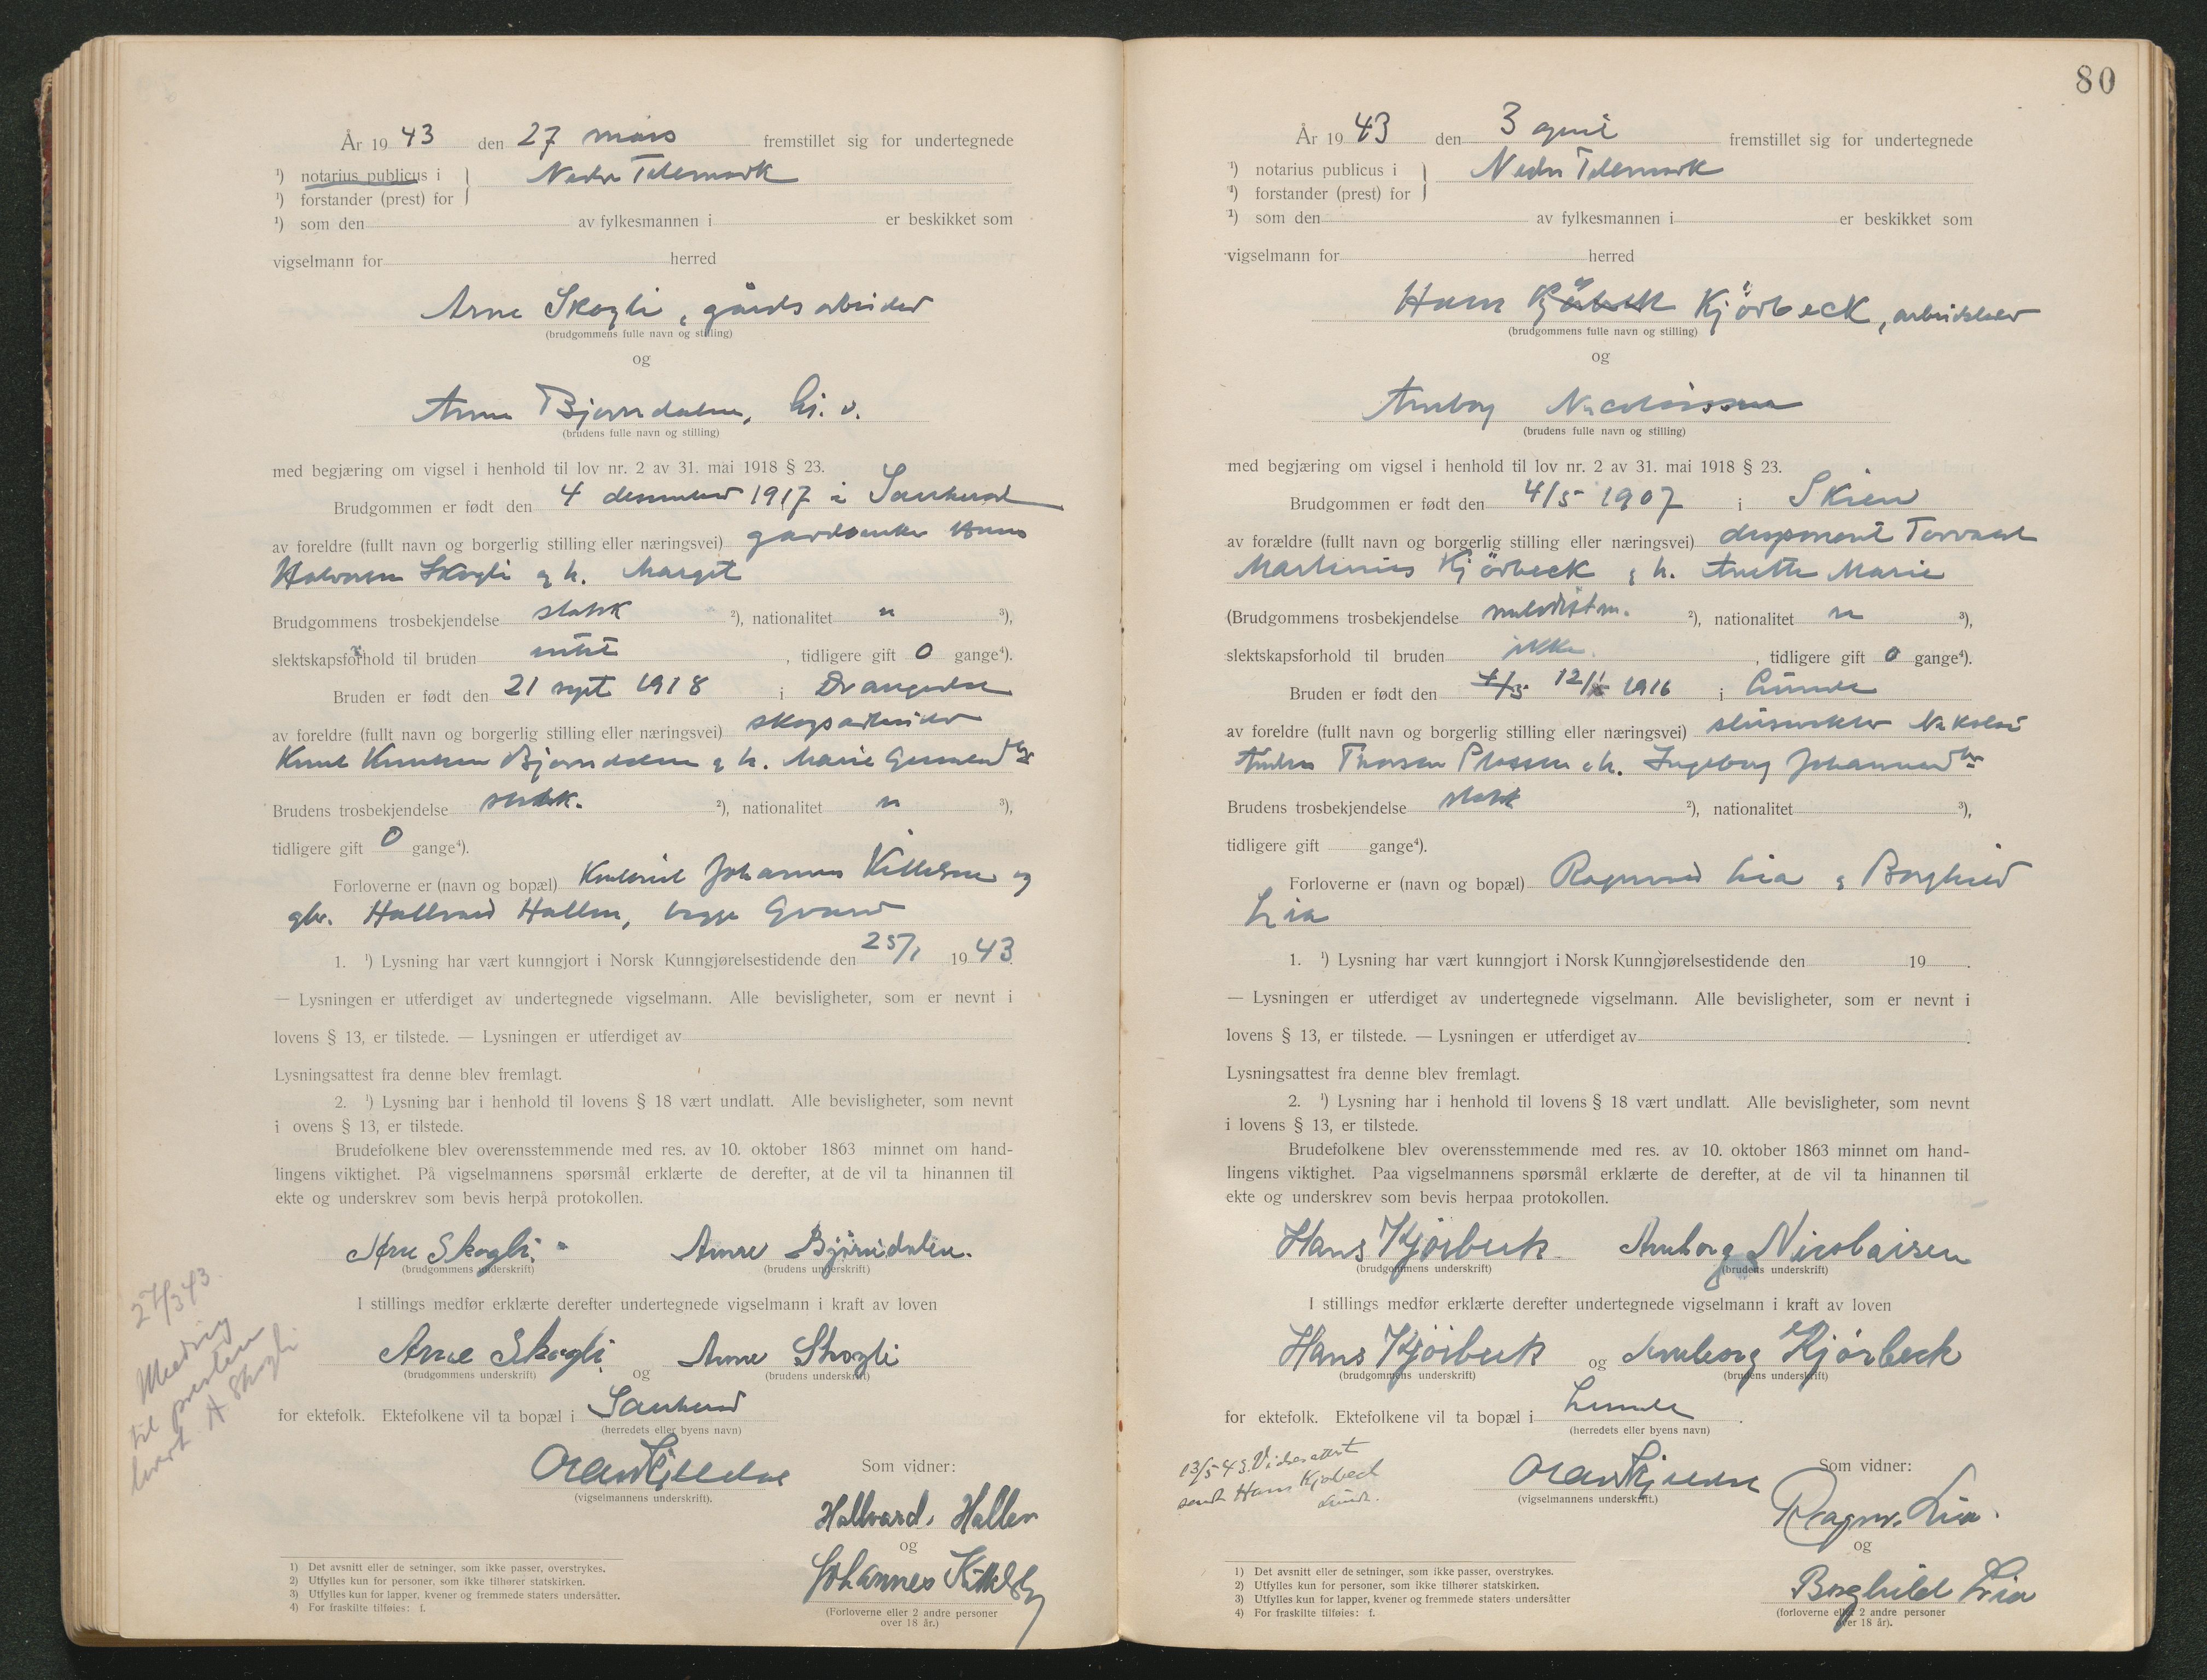 År 19 43 den 27 mars fremstillet sig for undertegnede
¹) notarius publicus i } Nedre Telemark
¹) forstander (prest) for
¹) som den av fylkesmannen i er beskikket som
vigselmann for herred
Arne Skogli, gårdsarbeider
(brudgommens fulle navn og stilling)
og
Anne Bjørndalen, hj. v.
(brudens fulle navn og stilling)
med begjæring om vigsel i henhold til lov nr. 2 av 31. mai 1918 § 23.
Brudgommen er født den 4 desember 1917 i Sauherad
av foreldre (fullt navn og borgerlig stilling eller næringsvei) Hans
Halvorsen Skogli og h. Margit
Brudgommens trosbekjendelse statsk ²), nationalitet n ³),
slektskapsforhold til bruden intet , tidligere gift 0 gange⁴).
Bruden er født den 21 sept 1918 i Drangedal
av foreldre (fullt navn og borgerlig stilling eller næringsvei) skogsarbeider
Knut Knutsen Bjørndalen og h. Marie
Brudens trosbekjendelse statsk. ²), nationalitet n ³),
tidligere gift 0 gange⁴).
Forloverne er (navn og bopæl) Johannes og
gbr. Hallvard Hallen, begge
1. ¹) Lysning har vært kunngjort i Norsk Kunngjørelsestidende den 25/1 19 43.
— Lysningen er utferdiget av undertegnede vigselmann. Alle bevisligheter, som er nevnt i
lovens § 13, er tilstede. — Lysningen er utferdiget av
Lysningsattest fra denne blev fremlagt.
2. ¹) Lysning har i henhold til lovens § 18 vært undlatt. Alle bevisligheter, som nevnt
i ovens § 13, er tilstede.
Brudefolkene blev overensstemmende med res. av 10. oktober 1863 minnet om hand-
lingens viktighet. På vigselmannens spørsmål erklærte de derefter, at de vil ta hinannen til
ekte og underskrev som bevis herpå protokollen.
Arne Skogli. Anne Bjørndalen.
(brudgommens underskrift) (brudens underskrift)
I stillings medfør erklærte derefter undertegnede vigselmann i kraft av loven
Arne Skogli og Anne Skogli
(brudgommens underskrift) (brudens underskrift)
for ektefolk. Ektefolkene vil ta bopæl i Sauherad
(herredets eller byens navn)
27/3 43
til presten
A Skogli
(vigselmannens underskrift).
Som vidner:
Hallvard. Hallen
og
Johannes
(Forloverne eller 2 andre personer
over 18 år.)
1) Det avsnitt eller de setninger, som ikke passer, overstrykes.
2) Utfylles kun for personer, som ikke tilhører statskirken.
3) Utfylles kun for lapper, kvener og fremmede staters undersåtter.
4) For fraskilte tilføies: f.
80
År 19 43 den 3 april fremstillet sig for undertegnede
¹) notarius publicus i } Nedre Telemark
¹) forstander (prest) for
¹) som den av fylkesmannen i er beskikket som
vigselmann for herred
Hans Kjörbeck,
(brudgommens fulle navn og stilling)
og
Anborg Nicolaissen
(brudens fulle navn og stilling)
med begjæring om vigsel i henhold til lov nr. 2 av 31. mai 1918 § 23.
Brudgommen er født den 4/5 1907 i Skien
av forældre (fullt navn og borgerlig stilling eller næringsvei) disponent Torvald
Martinius Kjörbeck og h. Anette Marie
(Brudgommens trosbekjendelse metodistm. ²), nationalitet n ³),
slektskapsforhold til bruden ikke , tidligere gift 0 gange⁴).
Bruden er født den 1916 i Lunde
av foreldre (fullt navn og borgerlig stilling eller næringsvei) slusevokter Nikolai
h. Ingeborg
Brudens trosbekjendelse statsk ²), nationalitet ³),
tidligere gift gange⁴).
Forloverne er (navn og bopæl) Ragnvald Lia og Borghild
Lia
1. ¹) Lysning har vært kunngjort i Norsk Kunngjørelsestidende den 19 .
— Lysningen er utferdiget av undertegnede vigselmann. Alle bevisligheter, som er nevnt i
lovens § 13, er tilstede. — Lysningen er utferdiget av .
Lysningsattest fra denne blev fremlagt.
2. ¹) Lysning har i henhold til lovens § 18 vært undlatt. Alle bevisligheter, som nevnt
i lovens § 13, er tilstede.
Brudefolkene blev overensstemmende med res. av 10. oktober 1863 minnet om hand-
lingens viktighet. Paa vigselmannens spørsmål erklærte de derefter, at de vil ta hinannen til
ekte og underskrev som bevis herpaa protokollen.
Hans Kjörbeck Anborg Nicolaisen
(brudgommens underskrift) (brudens underskrift)
I stillings medfør erklærte derefter undertegnede vigselmann i kraft av loven
Hans Kjörbeck og Anborg Kjørbeck
(brudgommens underskrift) (brudens underskrift)
for ektefolk. Ektefolkene vil ta bopæl i Lunde .
(herredets eller byens navn)
13/5 43. Vielsesattest
sendt Hans Kjøbeck
Lunde.
(vigselmannens underskrift.)
Som vidner:
Ragnv. Lia.
og
Borghild Lia
(forloverne eller 2 andre personer
over 18 år).
1) Det avsnitt eller de setninger, som ikke passer, overstrykes.
2) Utfylles kun for personer, som ikke tilhører statskirken.
3) Utfylles kun for lapper, kvener og fremmede staters undersåtter
4) For fraskilte tilføies: f.